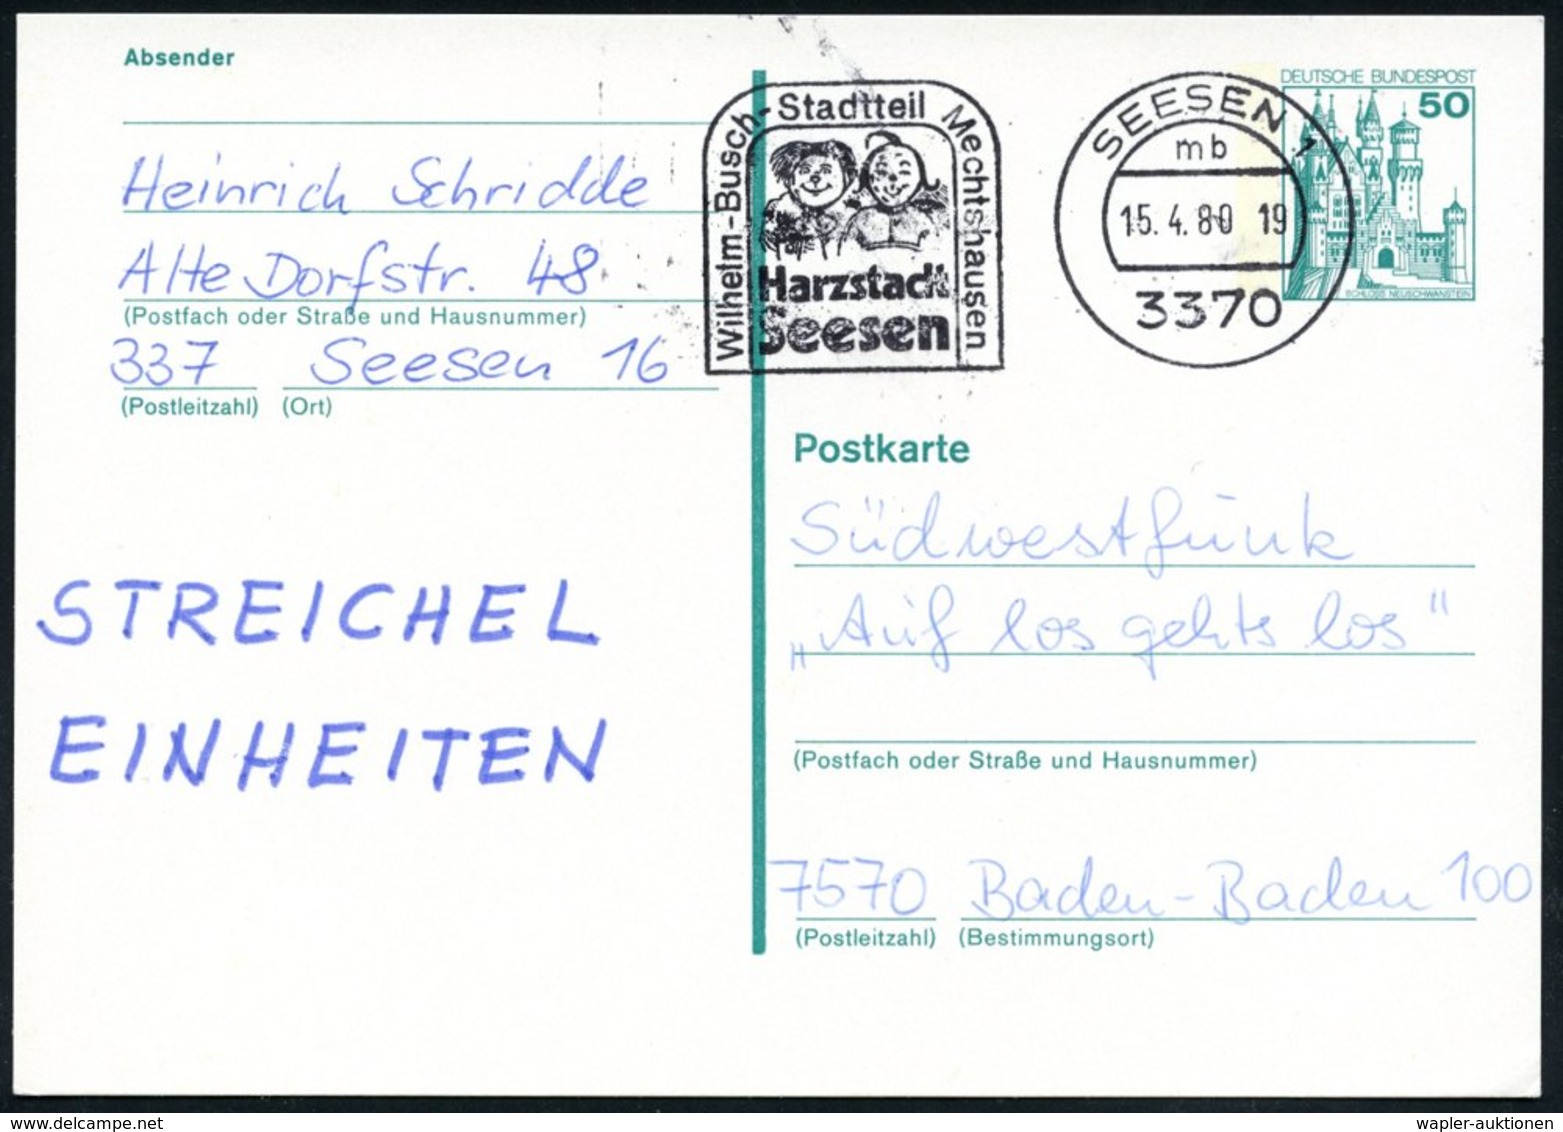 Absender
Heinrich Schridde
Alte Dorfstr. 48
(Postfach oder Straße und Hausnummer)
337 Seesen 16
(Postleitzahl) (Ort)
STREICHEL
EINHEITEN
Wilhelm-Busch-Stadtteil Mechtshausen
Harzstadt
Seesen
SEESEN 1
mb
15.4.80 19
3370
DEUTSCHE BUNDESPOST
50
SCHLOSS NEUSCHWANSTEIN
Postkarte
Südwestfunk
„Auf los gehts los"
(Postfach oder Straße und Hausnummer)
7570 Baden-Baden 100
(Postleitzahl) (Bestimmungsort)
wapler-auktionen